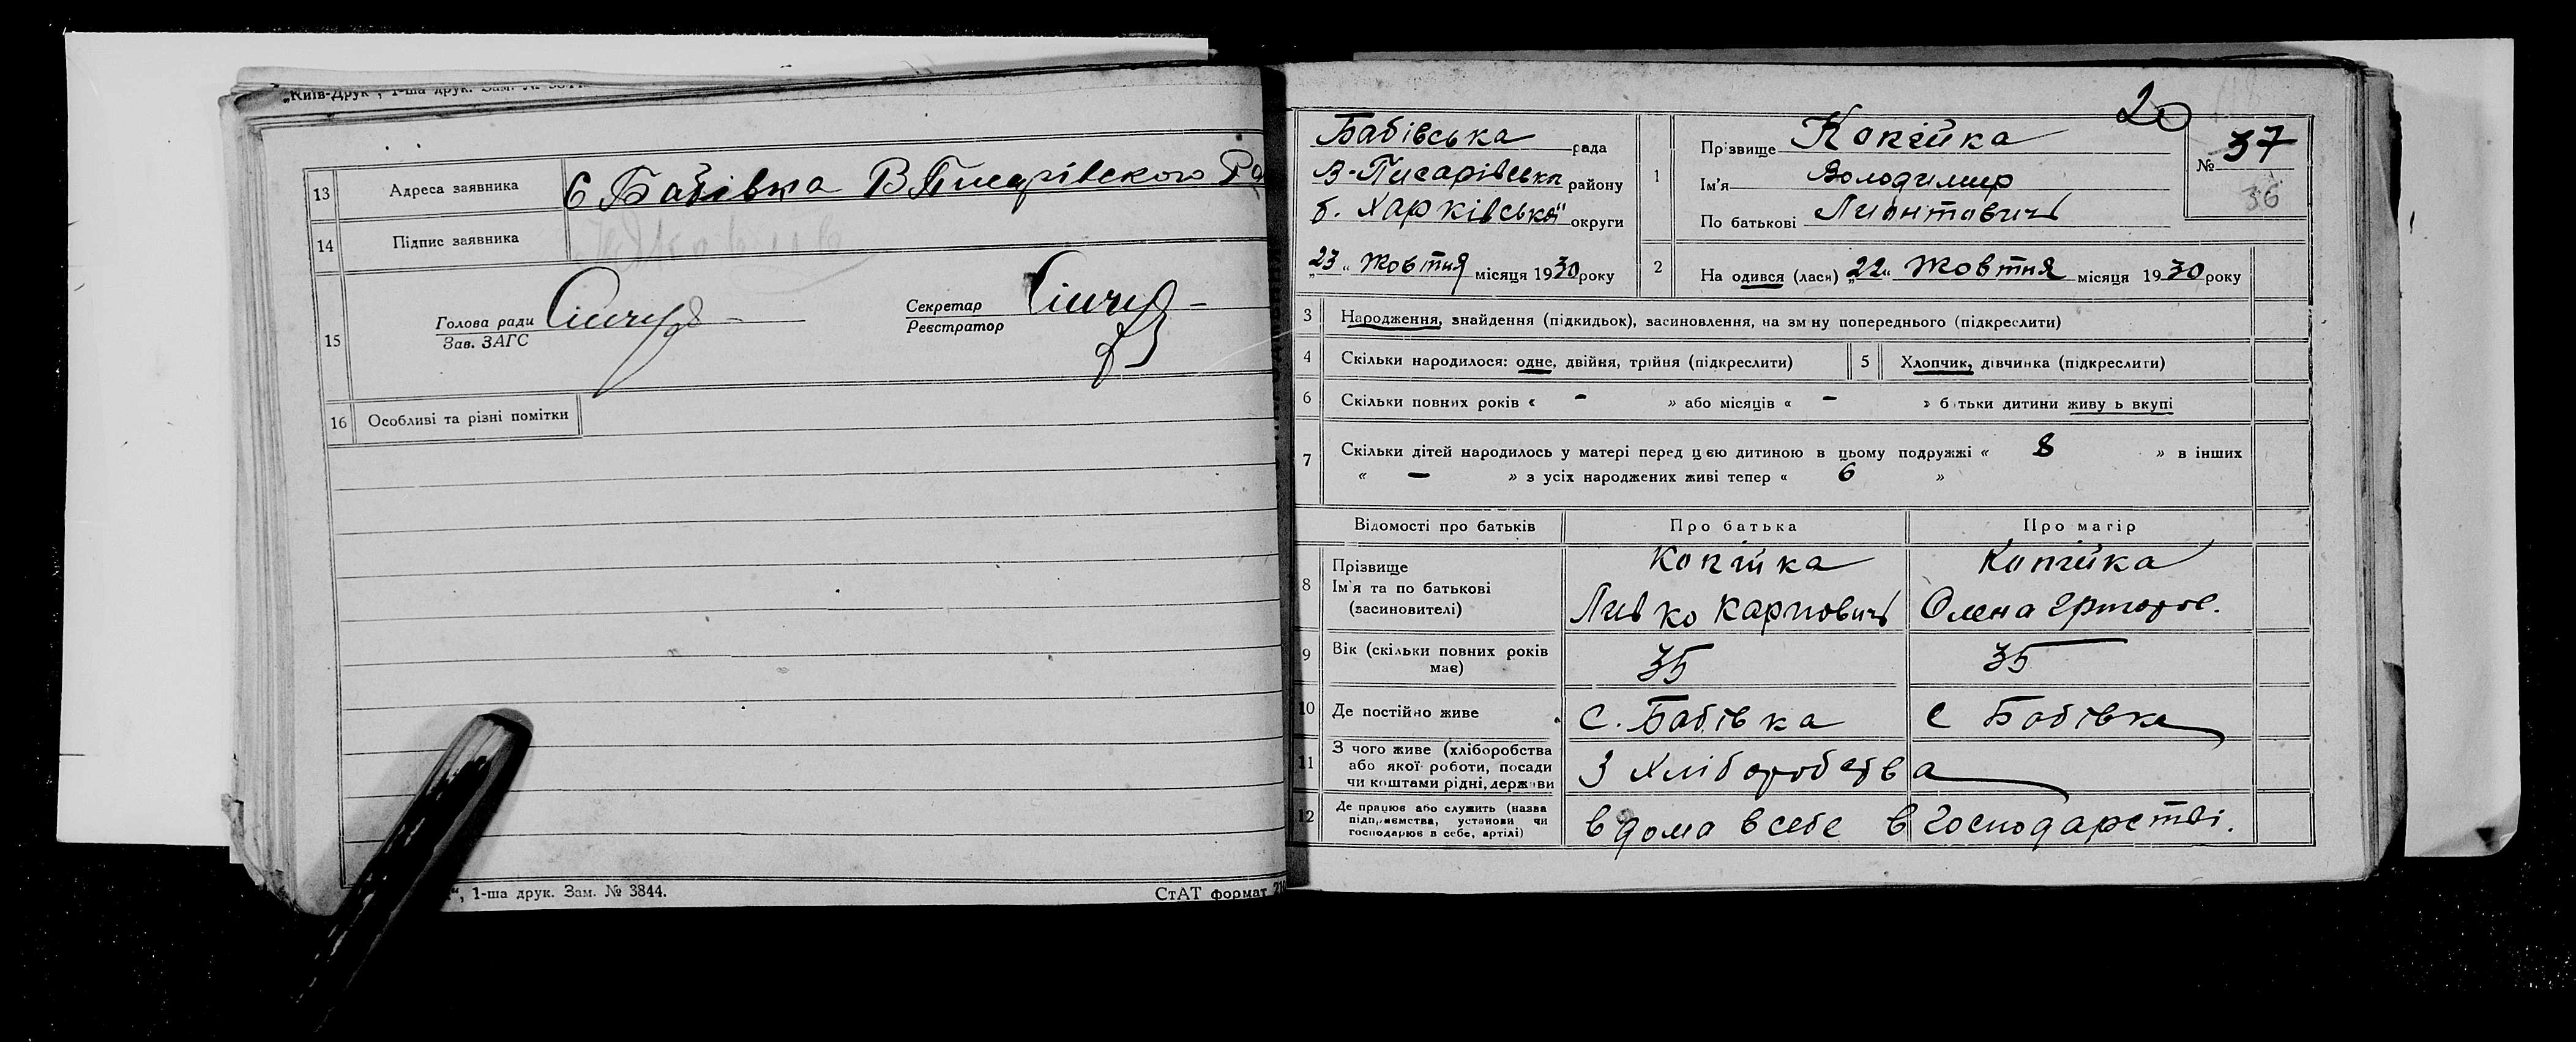 „Київ-Друк", 1-ша друк. Зам. №
13 Адреса заявника С Бабівка В Писарівского Ра
14 Підпис заявника
15 Голова ради
Зав. ЗАГС
Секретар
Реєстратор
16 Особливі та різні помітки
", 1-ша друк. Зам. № 3844.
СтАТ формат
20
Бабівська рада
В-Писарівськ району
б. Харківської округи
„23" жовтня місяця 1930 року
1 Прізвище Копійка
Ім'я Володимир
По батькові Лионтович
№ 37
36
2 На одився (лася) „22" жовтня місяця 1930 року
3 Народження, знайдення (підкидьок), засиновлення, на зм ну попереднього (підкреслити)
4 Скільки народилося: одне, двійня, трійня (підкреслити)
5 Хлопчик, дівчинка (підкреслити)
6 Скільки повних років « - » або місяців « - » б тьки дитини живу ь вкупі
7 Скільки дітей народилось у матері перед цією дитиною в цьому подружжі « 8 » в інших
« - » з усіх народжених живі тепер « 6 »
Відомості про батьків Про батька Про матір
8 Прізвище
Ім'я та по батькові
(засиновителі)
Копійка
Ливко Карпович
Копійка
Олена Григоров.
9 Вік (скільки повних років
має)
35 35
10 Де постійно живе С. Бабівка С Бабівка
11 З чого живе (хліборобства
або якої роботи, посади
чи коштами рідні, держави
З Хліборобства
12 Де працює або служить (назва
підприємства, установи чи
господарює в себе, артілі)
вдома в себе в господарстві.